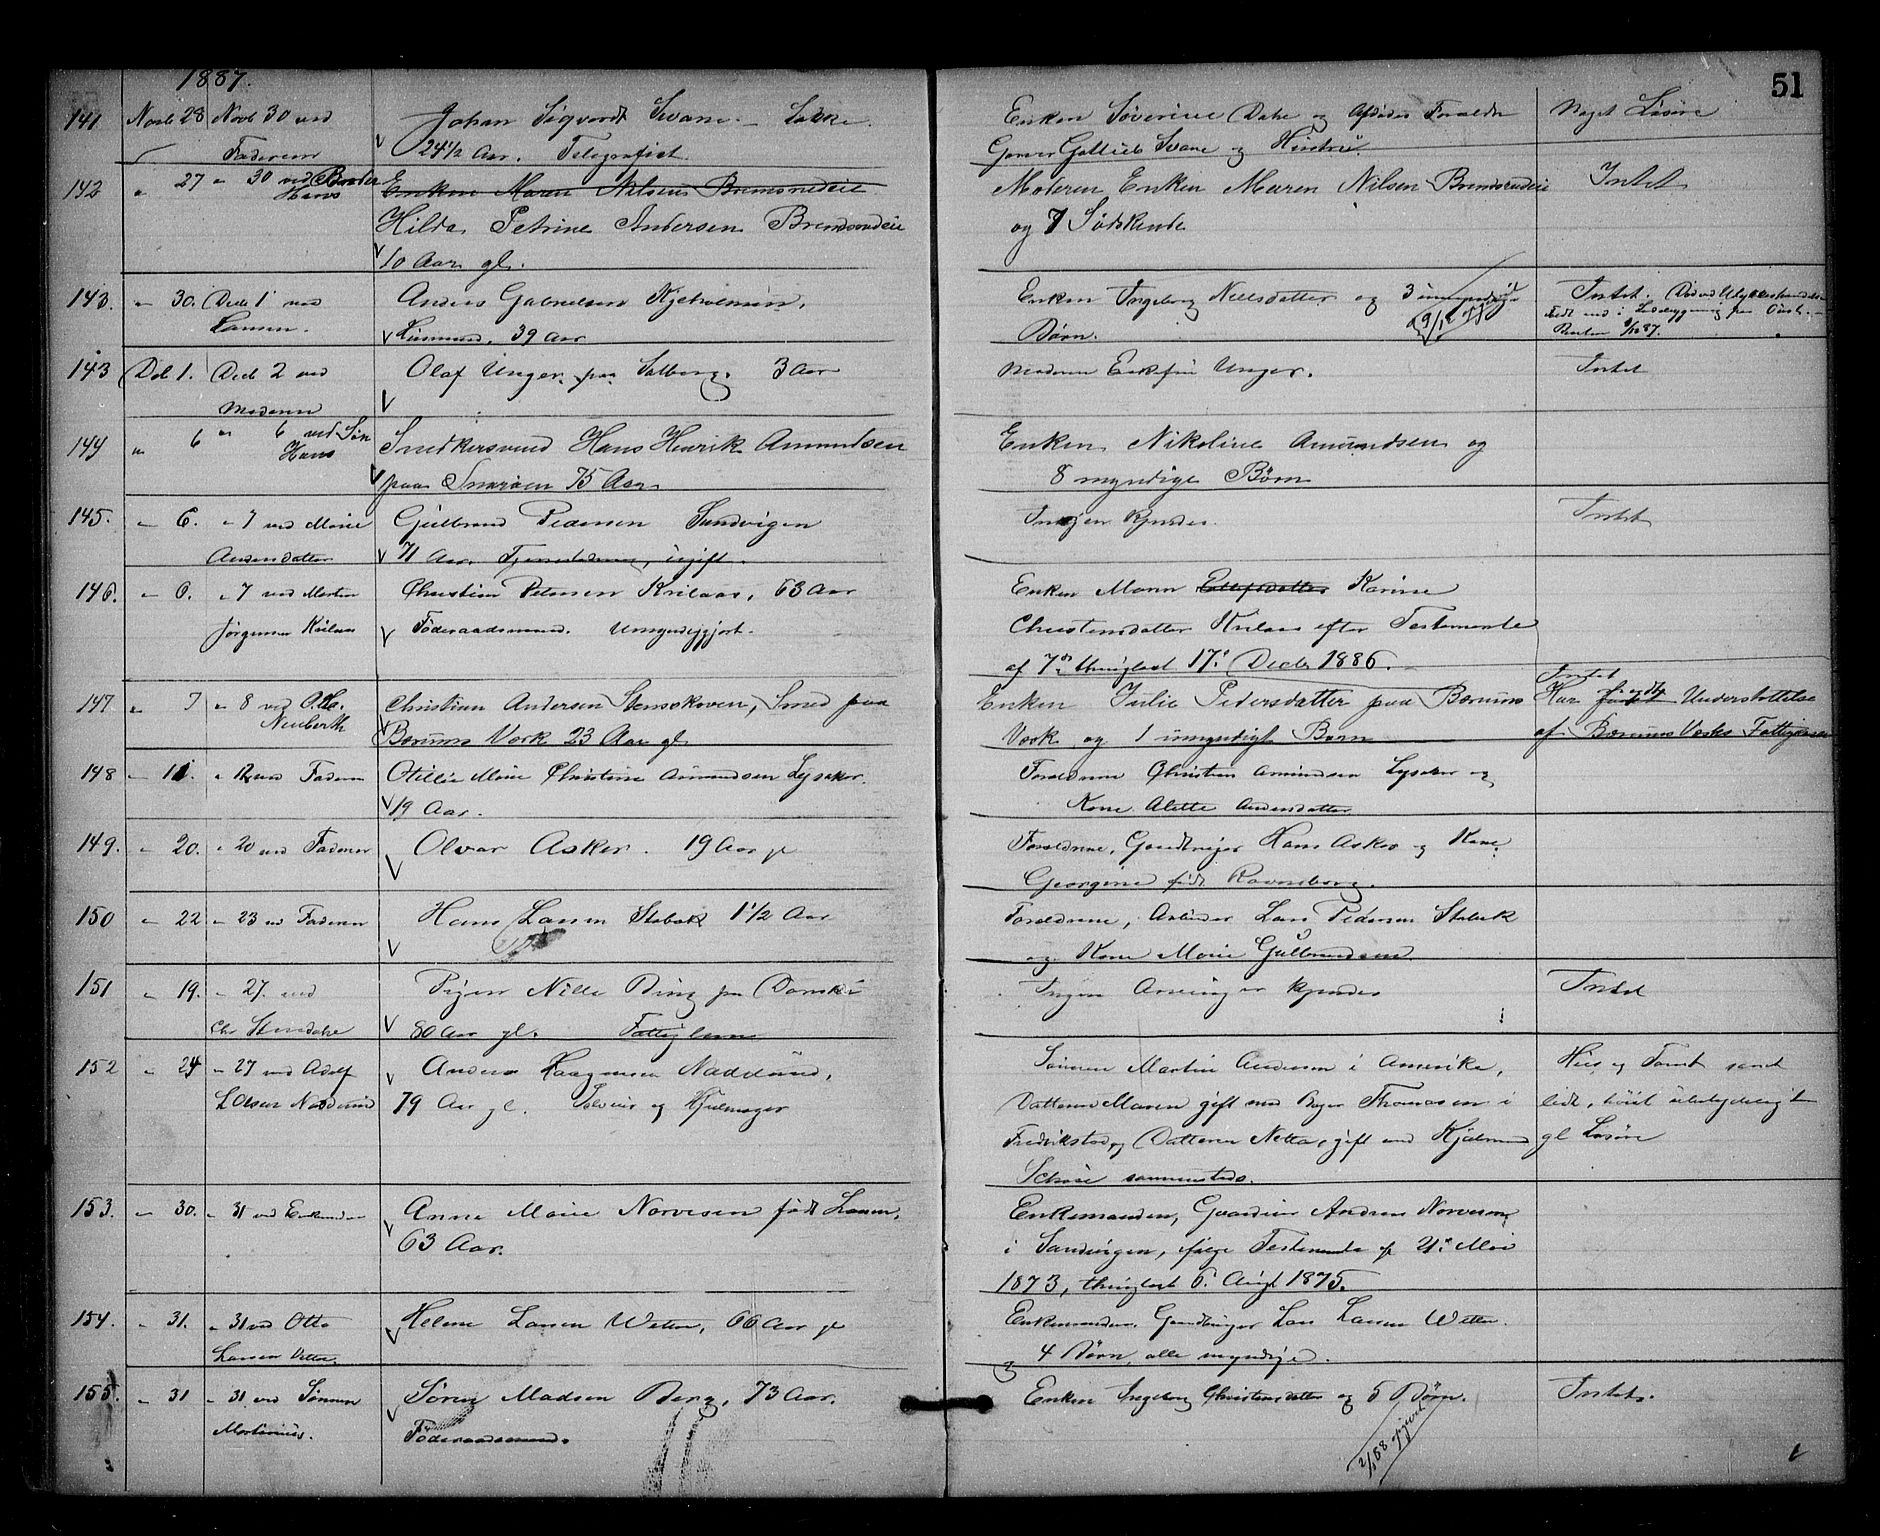 51
1887.
141 Novb 28 Novb 30 ved Johan Sigvardt Svane - Løkke. Enken Severine Dahe og Afdødes Forældre Noget Løsøre
Faderen 24 1/2 Aar. Telegrafist. Garver Gottlieb Svane og Hustru.
142 " 27 " 30 ved Broder Enken Maren Nilsen Bremsrudeie Moderen Enken Maren Nilsen Bremsrudeie Intet
Hans Hilda Petrine Andersen Bremsrudeie og 7 Sødskende
10 Aar gl.
143. " 30. Decb 1 ved Anders Gabrielsen Kjeholmen, Enken Ingeborg Neelsdatter og 3 umyndige Intet. Død ved
Larsen. 39 Aar Børn. 9/12
143 Deb 1. Decb 2 ved Olaf Unger paa Solberg. 3 Aar Moderen Unger. Intet
Moderen
144 " 6 " 6 ved Søn Snedkersvend Hans Henrik Amundsen Enken Nikoline Amundsen og
Hans paa Snarøen 75 Aar 8 myndige Børn
145. " 6. " 7 ved Marie Gulbrand Pedersen Sandvigen Ingen kjendes. Intet
Andersdatter 71 Aar. ugift.
146. " 6. " 7 ved Martin Christian Petersen Krilaas, 63 Aar Enken Maren Karine
Jørgensen Krilaas Føderaadsmand. Umyndiggjort. Christensdatter Krilaas efter Testamente
af 7de thinglæst 17. Decbr 1886.
147. " 7 " 8 ved O. Christian Andersen Stensskoven, Smed paa Enken Julie Pedersdatter paa Bærums Intet Har Understøttelse
Neuberth Bærums Værk 23 Aar gl. Værk og 1 umyndigt Barn af Bærums Værks Fattigkasse
148 " 11. " 12 ved Faderen Otilie Marie Christine Amundsen Lysaker. Forældrene Christian Amundsen Lysaker og
19 Aar. Kone Alette Andersdatter
149. " 20. " 20 ved Faderen Olvar Asker. 19 Aar gl Forældrene, Gaardbruger Hans Asker og Kone
Georgine født Ravnsborg.
150 " 22 " 23 ved Faderen Hans Larsen Stabæk 1 1/2 Aar Forældrene, Arbeider Lars Pedersen Stabæk
og Kone Marie Gulbrandsen
151 " 19. " 27. ved Pigen Nille Ring paa Ingen Arvinger kjendes Intet
Chr 80 Aar gl. Fattiglem
152 " 24 " 27 ved Adolf Anders Haagensen Nadderud, Sønnen Martin Andersen i Amerika, Hus og Tomt samt
L Olsen Nadderud 79 Aar gl. Selveier og Hjulmager Datteren Maren gift med Bager Thomassen i lidt, høist ubetydeligt
Fredrikstad, og Datteren Netta, gift med gl Løsøre
sammesteds.
153. " 30. " 31 ved Enkemanden Anne Marie Norvesen født Larsen, Enkemanden, Gaardeier Andreas Norvesen
63 Aar. i Sandvigen, ifølge Testamente af 4de Mai
1873, thinglæst 6. Augst 1875.
154. " 31. " 31 ved Otto Helene Larsen Wetter, 66 Aar gl Enkemanden. Gaardbruger Lars Larsen Wetter.
Larsen Vetter. og 4 Børn, alle myndige.
155. " 31 " 31 ved Sønnen Søren Madsen Berg, 73 Aar. Enken Ingeborg Christensdatter og 5 Børn. Intet.
Martinius. Føderaadsmand.